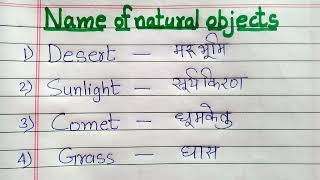 Name of natural objects
1) Desert — मरुभूमि
2) Sunlight — सूर्यकिरण
3) Comet — धूमकेतु
4) Grass — घास